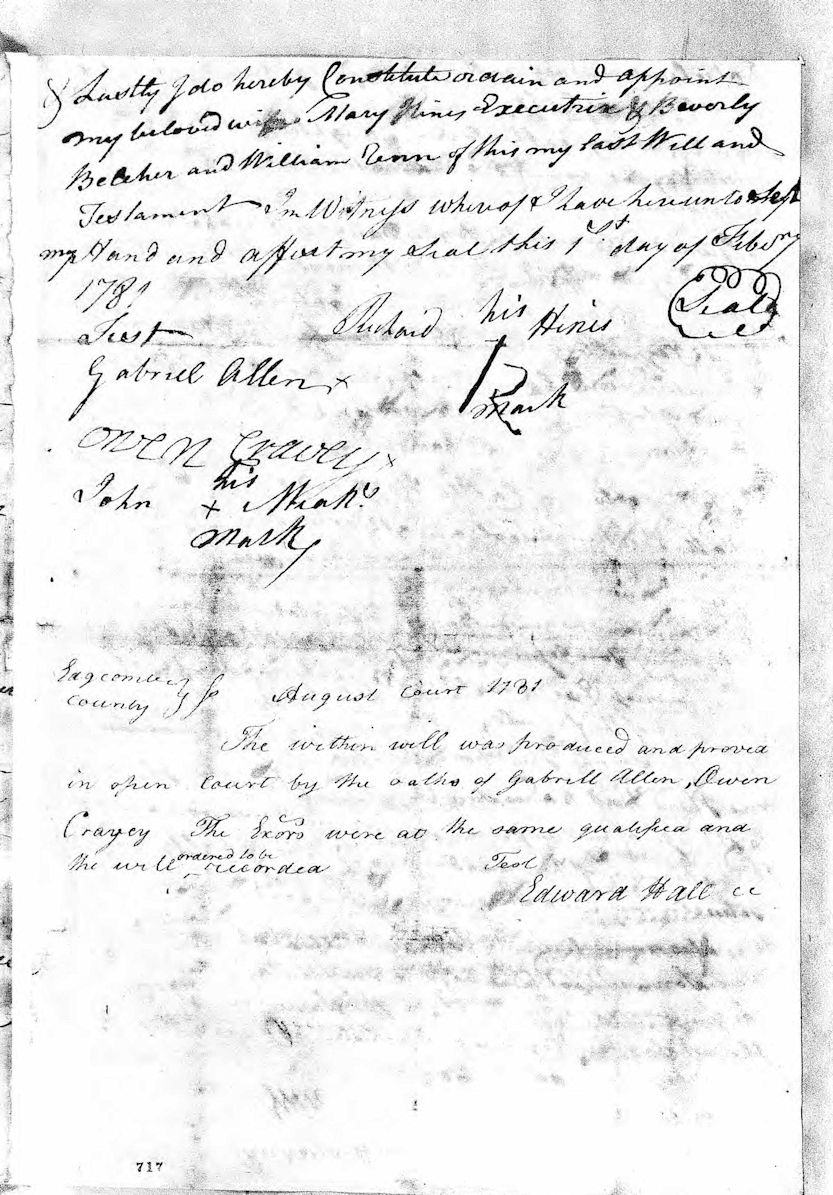 & Lastly I do hereby Constitute ordain and appoint
my beloved wife Mary Hines Executrix & Beverly
Belcher and William Fenn of this my last Will and
Testament In Witness whereof I have hereunto Set
my Hand and affixt my Seal this 1st day of Febery
1781
Test
Richard his Hines Seald
mark
Gabriel Allen x
OWEN Cravey x
his
John x
mark
Edgcombe
County Ss August Court 1781
The within will was produced and proved
in open Court by the oaths of Gabrill Allen, Owen
Cravey The Exors were at the same qualified and
the will ordered to be recorded Test
Edward Hall cc
717